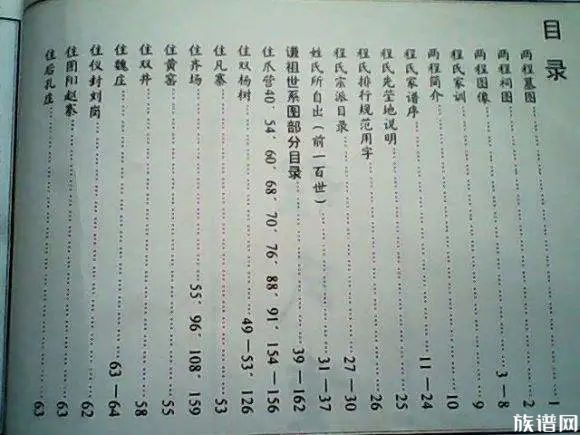 目录
两程墓图……………………1
两程祠图……………………2
两程图像……………………3—8
程氏家训……………………9
两程简介……………………10
程氏家谱序…………………11—24
程氏先茔地说明……………25
程氏排行规范用字…………26
程氏宗派目录………………27—30
姓氏所自出(前一百世)……31—37
谦祖世系图部分目录………39—162
住爪营40´ 54´ 60´ 68´ 70´ 76´ 88´ 91´ 154—156
住双杨树……………………49—53´ 126
住凡寨………………………53
住齐场………………………55´ 96´ 108´ 159
住黄窑………………………55
住双井………………………58
住魏庄………………………63—64
住仪封刘岗…………………62
住固阳赵寨…………………63
住后孔庄……………………63
族谱网